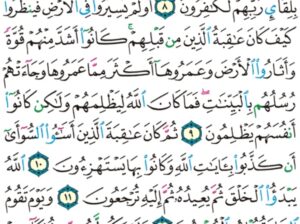 بِلِقَآئِ رَبِّهِمْ لَكَٰفِرُونَ ٨ أَوَلَمْ يَسِيرُوا۟ فِى ٱلْأَرْضِ فَيَنظُرُوا۟
كَيْفَ كَانَ عَٰقِبَةُ ٱلَّذِينَ مِن قَبْلِهِمْ كَانُوٓا۟ أَشَدَّ مِنْهُمْ قُوَّةً
وَأَثَارُوا۟ ٱلْأَرْضَ وَعَمَرُوهَآ أَكْثَرَ مِمَّا عَمَرُوهَا وَجَآءَتْهُمْ
رُسُلُهُم بِٱلْبَيِّنَٰتِ فَمَا كَانَ ٱللَّهُ لِيَظْلِمَهُمْ وَلَٰكِن كَانُوٓا۟
أَنفُسَهُمْ يَظْلِمُونَ ٩ ثُمَّ كَانَ عَٰقِبَةَ ٱلَّذِينَ أَسَٰٓـُٔوا۟ ٱلسُّوٓأَىٰٓ
أَن كَذَّبُوا۟ بِـَٔايَٰتِ ٱللَّهِ وَكَانُوا۟ بِهَا يَسْتَهْزِءُونَ ١٠ ٱللَّهُ
يَبْدَؤُا۟ ٱلْخَلْقَ ثُمَّ يُعِيدُهُۥ ثُمَّ إِلَيْهِ تُرْجَعُونَ ١١ وَيَوْمَ تَقُومُ